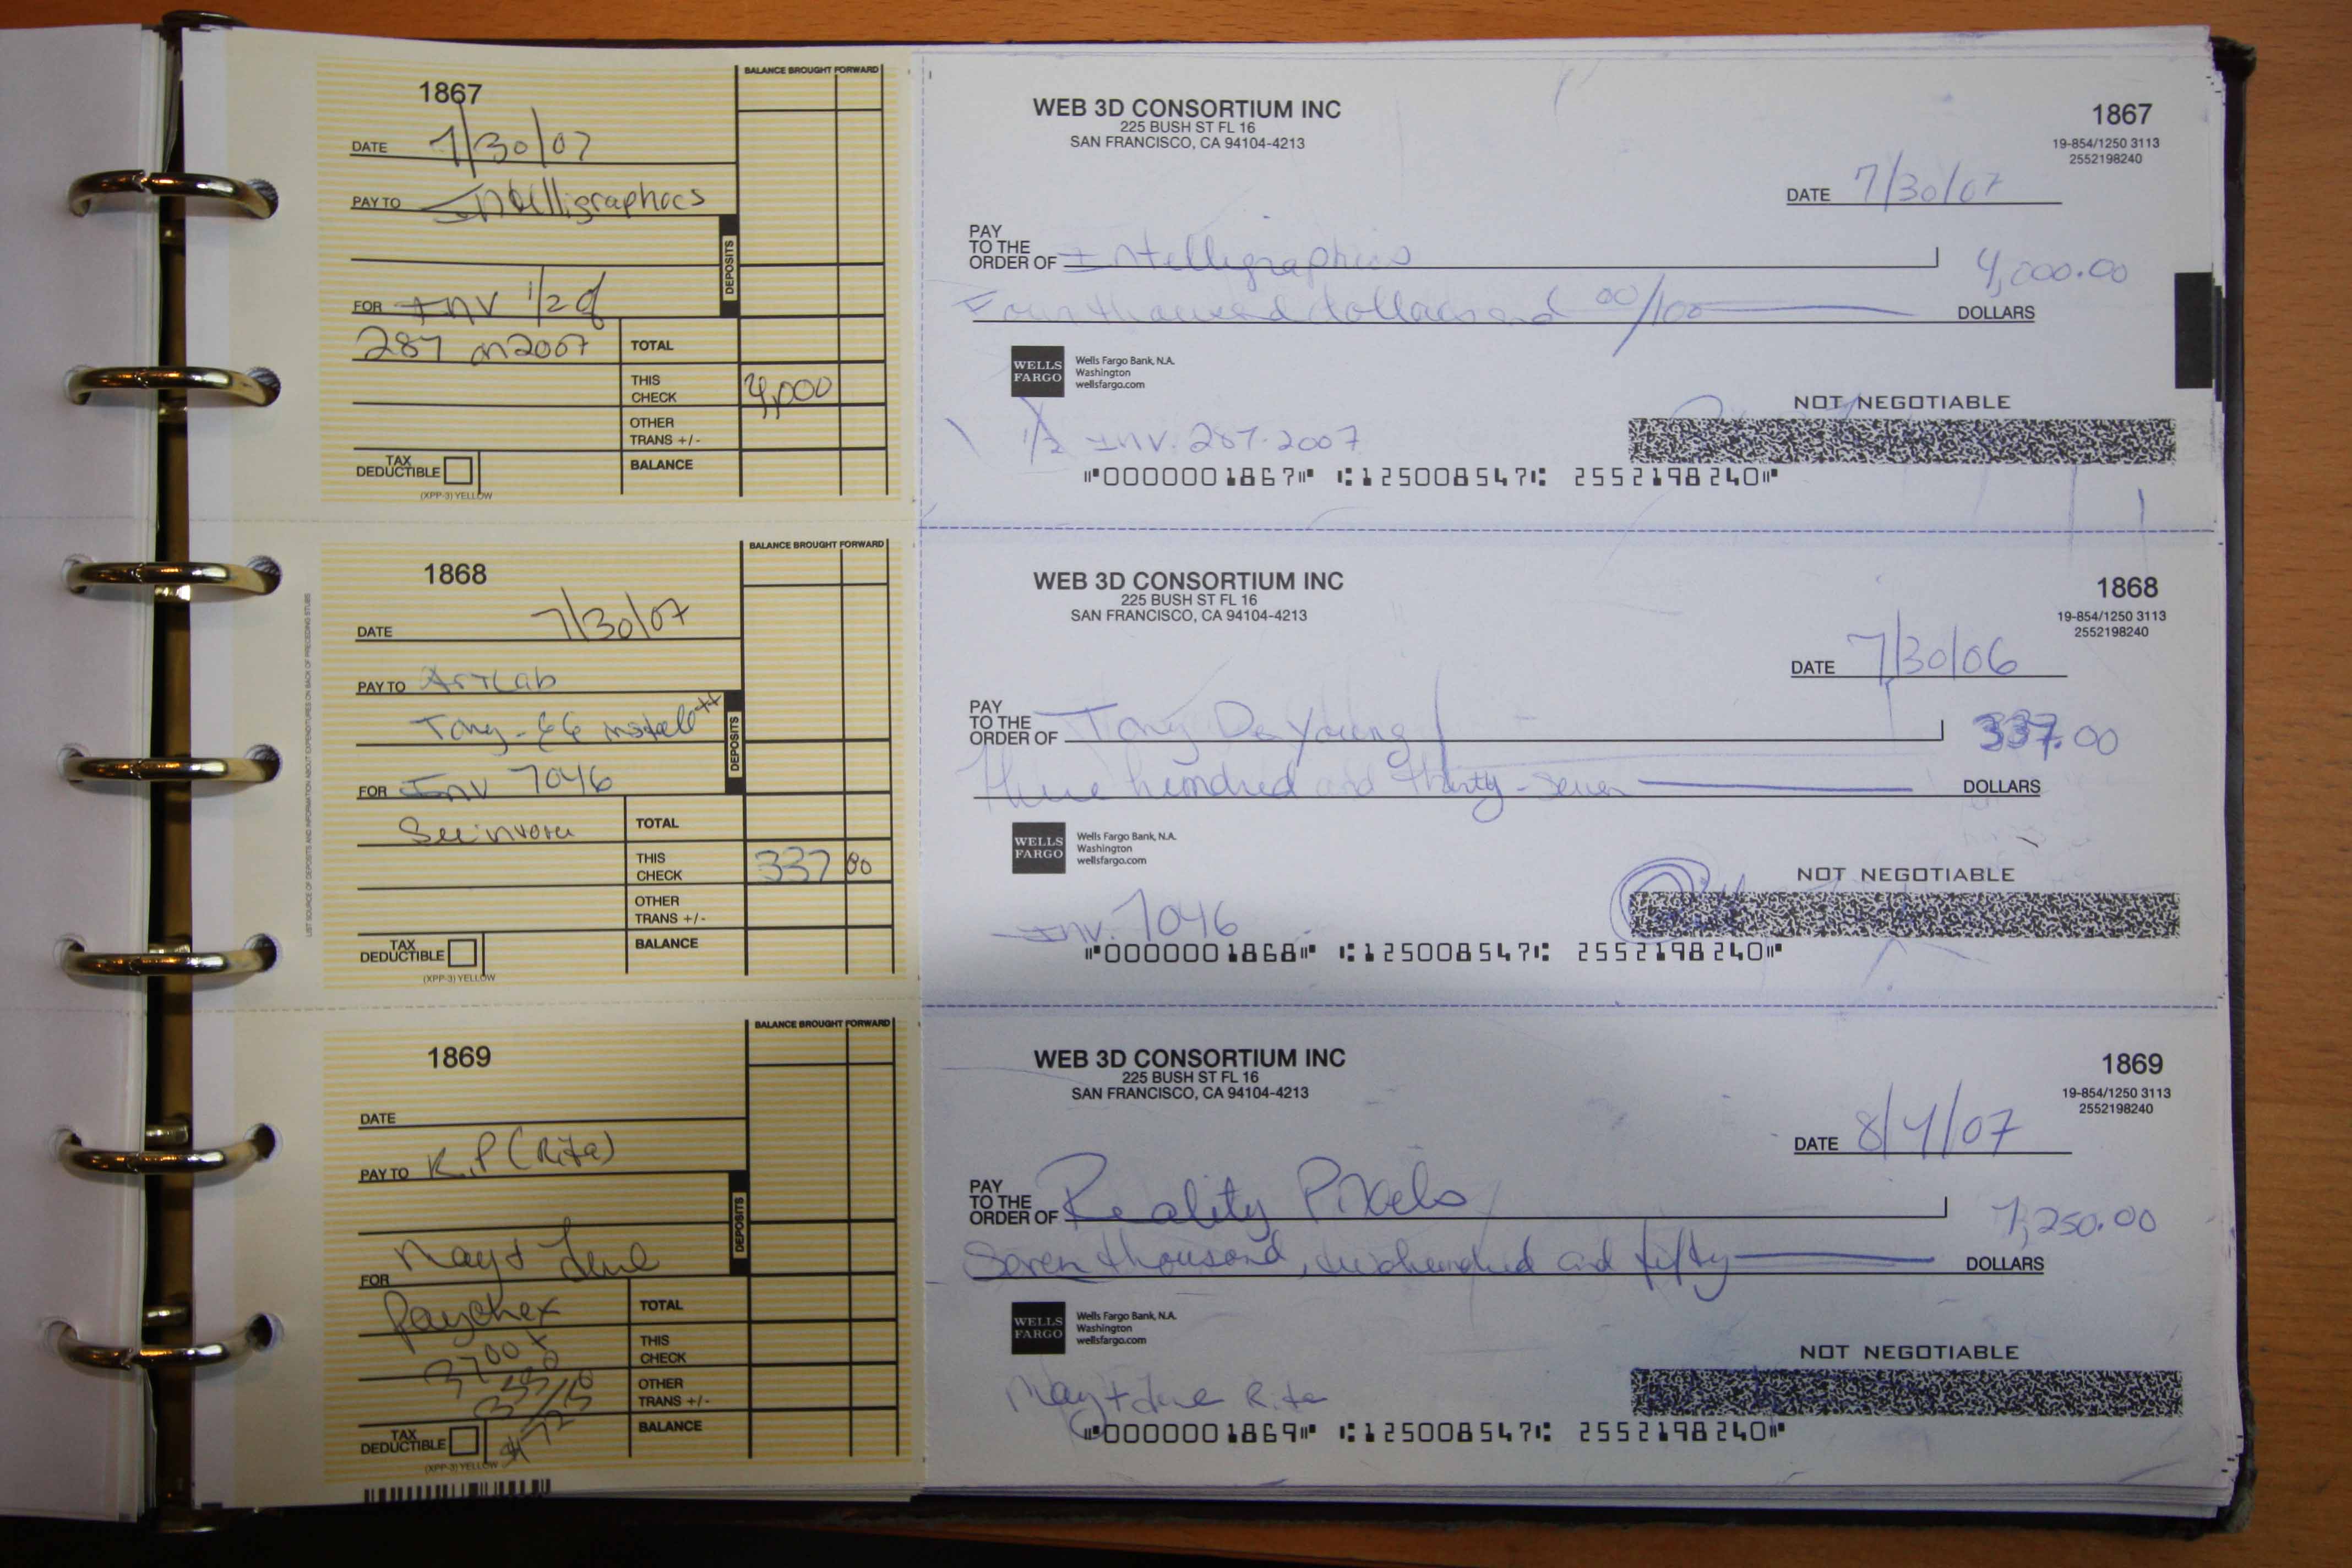 1867
BALANCE BROUGHT FORWARD
DATE 7/30/07
PAY TO Intelligraphics
DEPOSITS
FOR Inv 1/2 of
287 on 2007
TOTAL
THIS CHECK 4,000
OTHER TRANS +/-
TAX DEDUCTIBLE
BALANCE
(XPP-3) YELLOW
WEB 3D CONSORTIUM INC
225 BUSH ST FL 16
SAN FRANCISCO, CA 94104-4213
1867
19-854/1250 3113
2552198240
DATE 7/30/07
PAY
TO THE
ORDER OF Intelligraphics 4,000.00
Four thousand dollars and 00/100 DOLLARS
WELLS FARGO
Wells Fargo Bank, N.A.
Washington
wellsfargo.com
NOT NEGOTIABLE
1/2 Inv. 287-2007
⑈0000001867⑈ ⑆125008547⑆ 2552198240⑈
LIST SOURCE OF DEPOSITS AND INFORMATION ABOUT EXPENDITURES ON BACK OF PRECEDING STUBS
1868
BALANCE BROUGHT FORWARD
DATE 7/30/07
PAY TO ArtLab
Tony - GG install
DEPOSITS
FOR Inv 7046
TOTAL
THIS CHECK 337 00
OTHER TRANS +/-
TAX DEDUCTIBLE
BALANCE
(XPP-3) YELLOW
WEB 3D CONSORTIUM INC
225 BUSH ST FL 16
SAN FRANCISCO, CA 94104-4213
1868
19-854/1250 3113
2552198240
DATE 7/30/06
PAY
TO THE
ORDER OF Tony DeYoung 337.00
three hundred and thirty-seven DOLLARS
WELLS FARGO
Wells Fargo Bank, N.A.
Washington
wellsfargo.com
NOT NEGOTIABLE
Inv. 7046
⑈0000001868⑈ ⑆125008547⑆ 2552198240⑈
1869
BALANCE BROUGHT FORWARD
DATE
PAY TO R.P (Rita)
DEPOSITS
FOR May + June
Paychex
TOTAL
THIS CHECK
OTHER TRANS +/-
TAX DEDUCTIBLE
BALANCE
(XPP-3) YELLOW
WEB 3D CONSORTIUM INC
225 BUSH ST FL 16
SAN FRANCISCO, CA 94104-4213
1869
19-854/1250 3113
2552198240
DATE 8/4/07
PAY
TO THE
ORDER OF Reality Pixels 7,250.00
Seven thousand, two hundred and fifty DOLLARS
WELLS FARGO
Wells Fargo Bank, N.A.
Washington
wellsfargo.com
NOT NEGOTIABLE
May + June Rita
⑈0000001869⑈ ⑆125008547⑆ 2552198240⑈